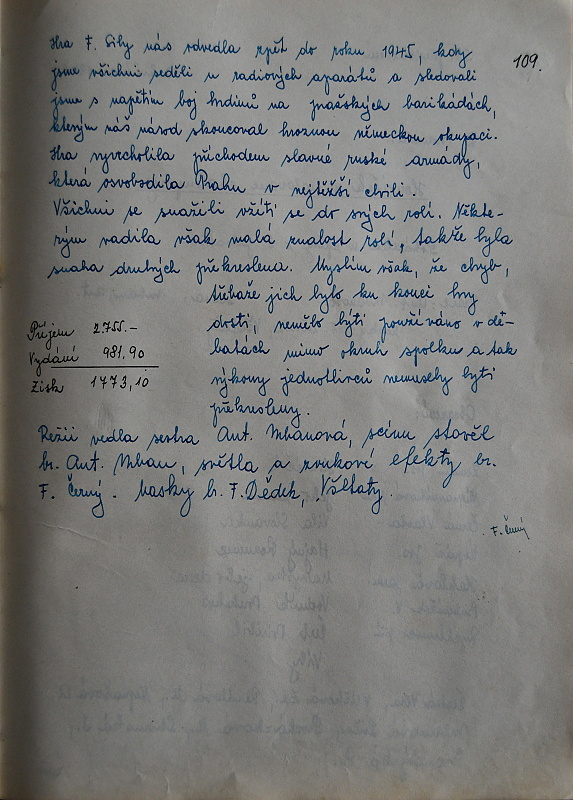 109.
Hra F. Síly nás odvedla zpět do roku 1945, kdy
jsme všichni seděli u radiových aparátů a sledovali
jsme s napětím boj hrdinů na pražských barikádách,
kterým náš národ skoncoval hroznou německou okupaci.
Hra vyvrcholila příchodem slavné ruské armády,
která osvobodila Prahu v nejtěžší chvíli.
Všichni se snažili vžíti se do svých rolí. Někte-
rým vadila však malá znalost rolí, takže byla
snaha druhých překreslena. Myslím však, že chyb,
třebaže jich bylo ku konci hry
dosti, nemělo býti používáno v de-
batách mimo okruh spolku a tak
výkony jednotlivců nemusely býti
překresleny.
Příjem 2.755.-
Vydání 981,90
Zisk 1773,10
Režii vedla sestra Ant. Urbanová, scénu stavěl
br. Ant. Urban, světla a zvukové efekty br.
F. Černý. Masky br. F. Dědek, Všetaty.
F. Černý